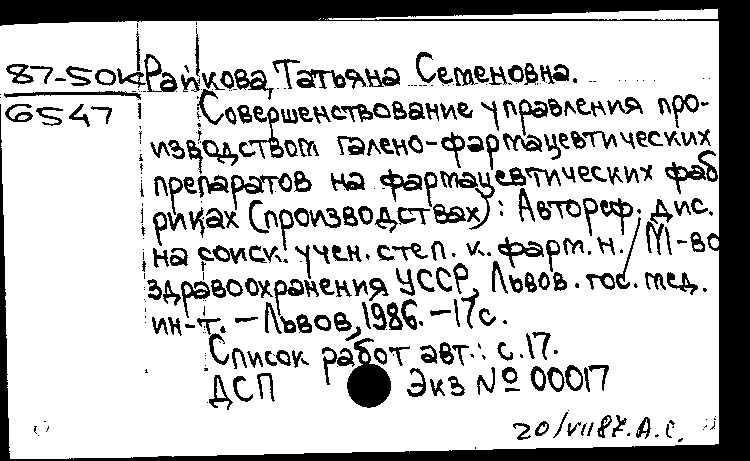 87-50к Райкова, Татьяна Семеновна.
6547 Совершенствование управления про-
изводством галено-фармацевтических
препаратов на фармацевтических фаб
риках (производствах): Автореф. дис.
на соиск. учен. степ. к. фарм. н. / М-во
здравоохранения УССР, Львов. гос. мед.
ин-т. – Львов, 1986. – 17 с.
Список работ авт.: с. 17.
ДСП Экз № 00017
20/VII 87. А.С.